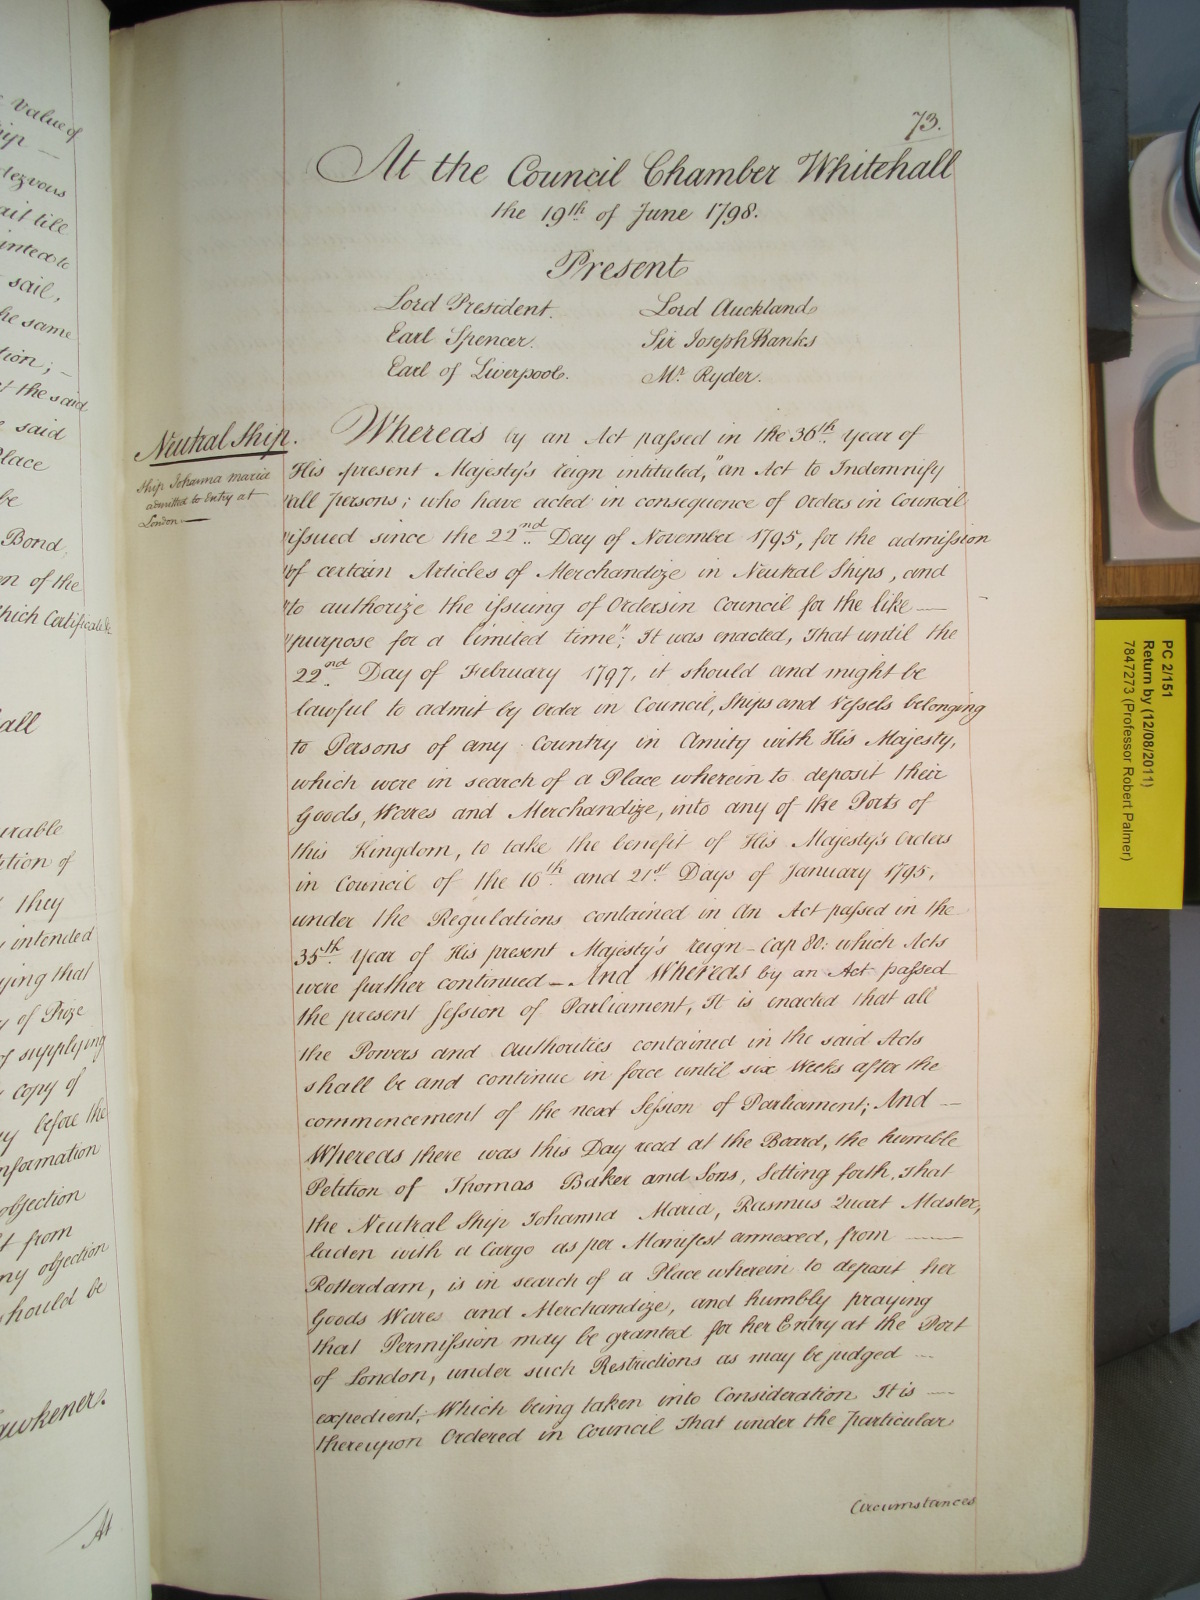 value of
ip —
dezvous
ait till
inted to
sail,
he same
tion; –
t the said
said
Place
be
Bond,
en of the
hich Certificate
all
urable
tition of
they
intended
ying that
y of Prize
of supplying
copy of
y before the
nformation
objection
t from
ny objection
should be
awkener.
At
73.
At the Council Chamber Whitehall
the 19th of June 1798.
Present
Lord President. Lord Auckland
Earl Spencer. Sir Joseph Banks
Earl of Liverpool. Mr. Ryder.
Neutral Ship.
Ship Johanna Maria
admitted to Entry at
London —
Whereas by an Act passed in the 36th. Year of
His present Majesty's reign intituled, "an Act to Indemnify
"all persons; who have acted in consequence of Orders in Council
"issued since the 22nd. Day of November 1795, for the admission
"of certain Articles of Merchandize in Neutral Ships, and
"to authorize the issuing of Orders in Council for the like —
"purpose for a limited time"; It was enacted, That until the
22nd. Day of February 1797, it should and might be
lawful to admit by Order in Council, Ships and Vessels belonging
to Persons of any Country in Amity with His Majesty,
which were in search of a Place wherein to deposit their
Goods, Wares and Merchandize, into any of the Ports of
this Kingdom, to take the benefit of His Majesty's Orders
in Council of the 16th. and 21st. Days of January 1795,
under the Regulations contained in An Act passed in the
35th. Year of His present Majesty's reign – Cap 80: which Acts
were further continued – And Whereas by an Act passed
the present Session of Parliament, It is enacted that all
the Powers and Authorities contained in the said Acts
shall be and continue in force until six Weeks after the
commencement of the next Session of Parliament; And —
Whereas there was this Day read at the Board, the humble
Petition of Thomas Baker and Sons, Setting forth, That
the Neutral Ship Johanna Maria, Rasmus Quart Master,
laden with a Cargo as per Manifest annexed, from —
Rotterdam, is in search of a Place wherein to deposit her
Goods Wares and Merchandize, and humbly praying
that Permission may be granted for her Entry at the Port
of London, under such Restrictions as may be judged —
expedient; Which being taken into Consideration It is —
thereupon Ordered in Council That under the particular
Circumstances
PC 2/151
Return by (12/08/2011)
7847273 (Professor Robert Palmer)